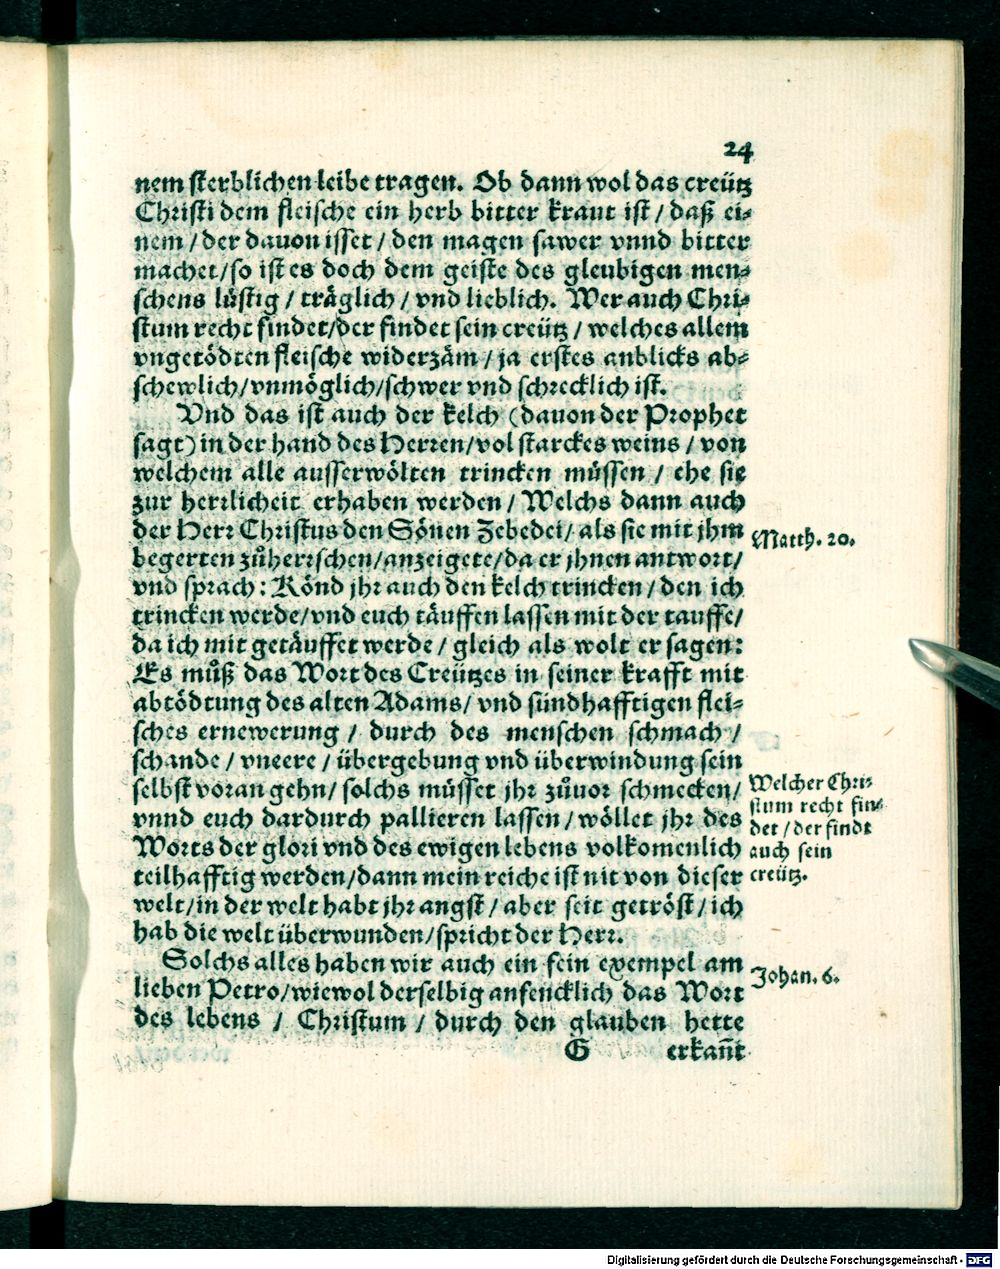 24
nem sterblichen leibe tragen. Ob dann wol das creütz
Christi dem fleische ein herb bitter kraut ist / daß ei⸗
nem / der dauon isset / den magen sawer vnnd bitter
machet / so ist es doch dem geiste des gleubigen men⸗
schens lüstig / träglich / vnd lieblich. Wer auch Chri⸗
stum recht findet / der findet sein creütz / welches allem
vngetödten fleische widerzäm / ja erstes anblicks ab⸗
schewlich / vnmöglich / schwer vnd schrecklich ist.
Vnd das ist auch der kelch (dauon der Prophet
sagt) in der hand des Herren / vol starckes weins / von
welchem alle ausserwölten trincken müssen / ehe sie
zur herrlicheit erhaben werden / Welchs dann auch
der Herr Christus den Sönen Zebedei / als sie mit jhm
Matth. 20.
begerten zůherrschen / anzeigete / da er jhnen antwort /
vnd sprach: Könd jhr auch den kelch trincken / den ich
trincken werde / vnd euch täuffen lassen mit der tauffe /
da ich mit getäuffet werde / gleich als wolt er sagen:
Es můß das Wort des Creützes in seiner krafft mit
abtödtung des alten Adams / vnd sündhafftigen flei⸗
sches ernewerung / durch des menschen schmach /
schande / vneere / übergebung vnd überwindung sein
selbst voran gehn / solchs müsset jhr zůuor schmecken /
vnnd euch dardurch pallieren lassen / wöllet jhr des
Worts der glori vnd des ewigen lebens volkomenlich
teilhafftig werden / dann mein reiche ist nit von dieser
welt / in der welt habt jhr angst / aber seit getröst / ich
hab die welt überwunden / spricht der Herr.
Welcher Chri⸗
stum recht fin⸗
det / der findt
auch sein
creütz.
Solchs alles haben wir auch ein fein exempel am
Johan. 6.
lieben Petro / wiewol derselbig anfencklich das Wort
des lebens / Christum / durch den glauben hette
G erkañt
Digitalisierung gefördert durch die Deutsche Forschungsgemeinschaft - DFG